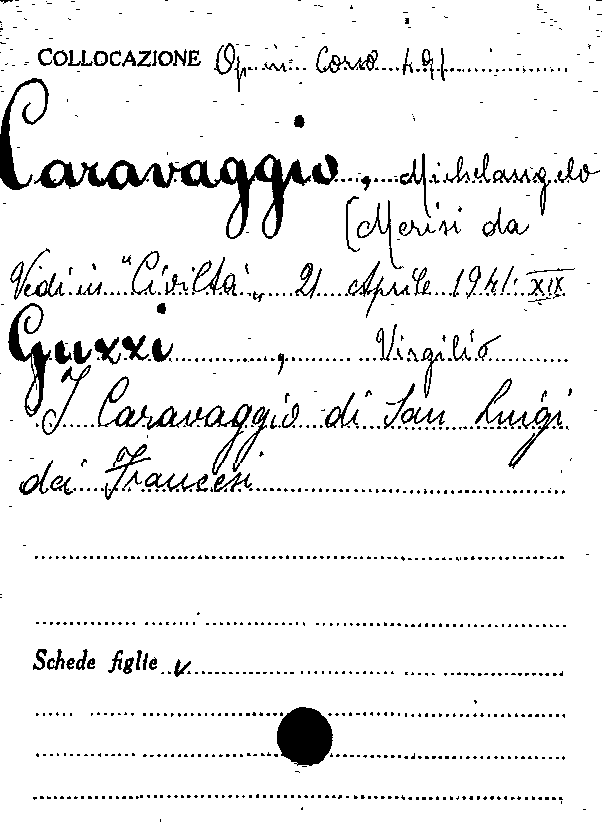 COLLOCAZIONE Op. in Corso
Caravaggio, Michelangelo
[Merisi da
Vedi in "Civiltà„ 21 Aprile 1941. XIX
Guzzi, Virgilio
I Caravaggio di San Luigi
dei Francesi
Schede figlie v